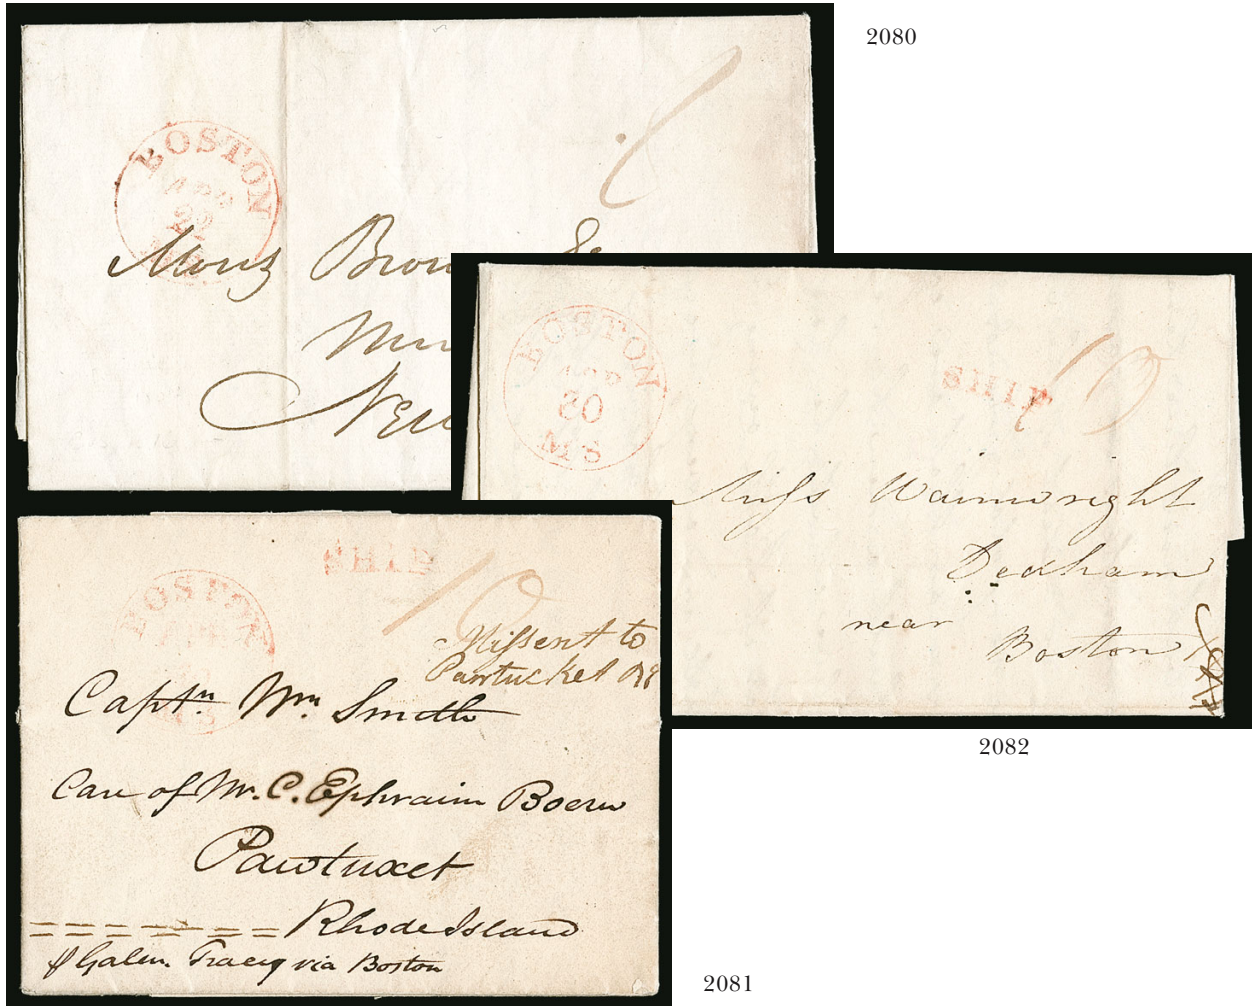 2080
BOSTON
22
Brow
New
BOSTON
30
MS
SHIP
10
Miss Wainwright
Dedham
near
Boston
2082
BOSTON
SHIP
10
Missent to
Pawtucket
Captn. Wm. Smith
Care of Mr. C. Ephraim
Pawtuxet
Rhode Island
Galen Tracey via Boston
2081